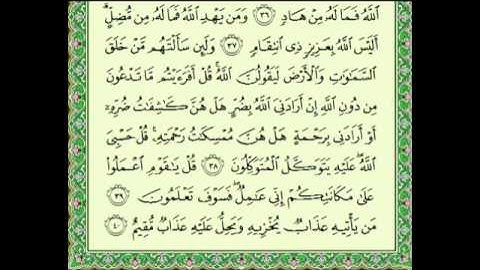 اللَّهُ فَمَا لَهُ مِنْ هَادٍ ۝٣٦ وَمَن يَهْدِ اللَّهُ فَمَا لَهُ مِن مُّضِلٍّ ۗ
أَلَيْسَ اللَّهُ بِعَزِيزٍ ذِى انتِقَامٍ ۝٣٧ وَلَئِن سَأَلْتَهُم مَّنْ خَلَقَ
السَّمَٰوَٰتِ وَالْأَرْضَ لَيَقُولُنَّ اللَّهُ ۚ قُلْ أَفَرَءَيْتُم مَّا تَدْعُونَ
مِن دُونِ اللَّهِ إِنْ أَرَادَنِىَ اللَّهُ بِضُرٍّ هَلْ هُنَّ كَٰشِفَٰتُ ضُرِّهِۦٓ
أَوْ أَرَادَنِى بِرَحْمَةٍ هَلْ هُنَّ مُمْسِكَٰتُ رَحْمَتِهِۦ ۚ قُلْ حَسْبِىَ
اللَّهُ ۖ عَلَيْهِ يَتَوَكَّلُ الْمُتَوَكِّلُونَ ۝٣٨ قُلْ يَٰقَوْمِ اعْمَلُوا۟
عَلَىٰ مَكَانَتِكُمْ إِنِّى عَٰمِلٌ ۖ فَسَوْفَ تَعْلَمُونَ ۝٣٩
مَن يَأْتِيهِ عَذَابٌ يُخْزِيهِ وَيَحِلُّ عَلَيْهِ عَذَابٌ مُّقِيمٌ ۝٤٠